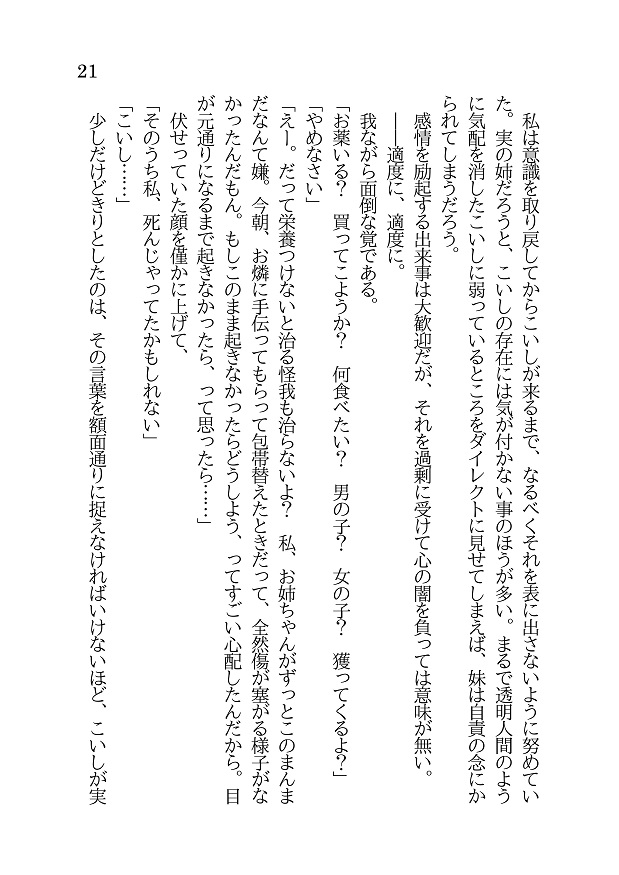 21
　私は意識を取り戻してからこいしが来るまで、なるべくそれを表に出さないように努めてい
た。実の姉だろうと、こいしの存在には気が付かない事のほうが多い。まるで透明人間のよう
に気配を消したこいしに弱っているところをダイレクトに見せてしまえば、妹は自責の念にか
られてしまうだろう。
　感情を励起する出来事は大歓迎だが、それを過剰に受けて心の闇を負っては意味が無い。
　――適度に、適度に。
　我ながら面倒な覚である。
「お薬いる？　買ってこようか？　何食べたい？　男の子？　女の子？　獲ってくるよ？」
「やめなさい」
「えー。だって栄養つけないと治る怪我も治らないよ？　私、お姉ちゃんがずっとこのまんま
だなんて嫌。今朝、お燐に手伝ってもらって包帯替えたときだって、全然傷が塞がる様子がな
かったんだもん。もしこのまま起きなかったらどうしよう、ってすごい心配したんだから。目
が元通りになるまで起きなかったら、って思ったら……」
　伏せっていた顔を僅かに上げて、
「そのうち私、死んじゃってたかもしれない」
「こいし……」
　少しだけどきりとしたのは、その言葉を額面通りに捉えなければいけないほど、こいしが実